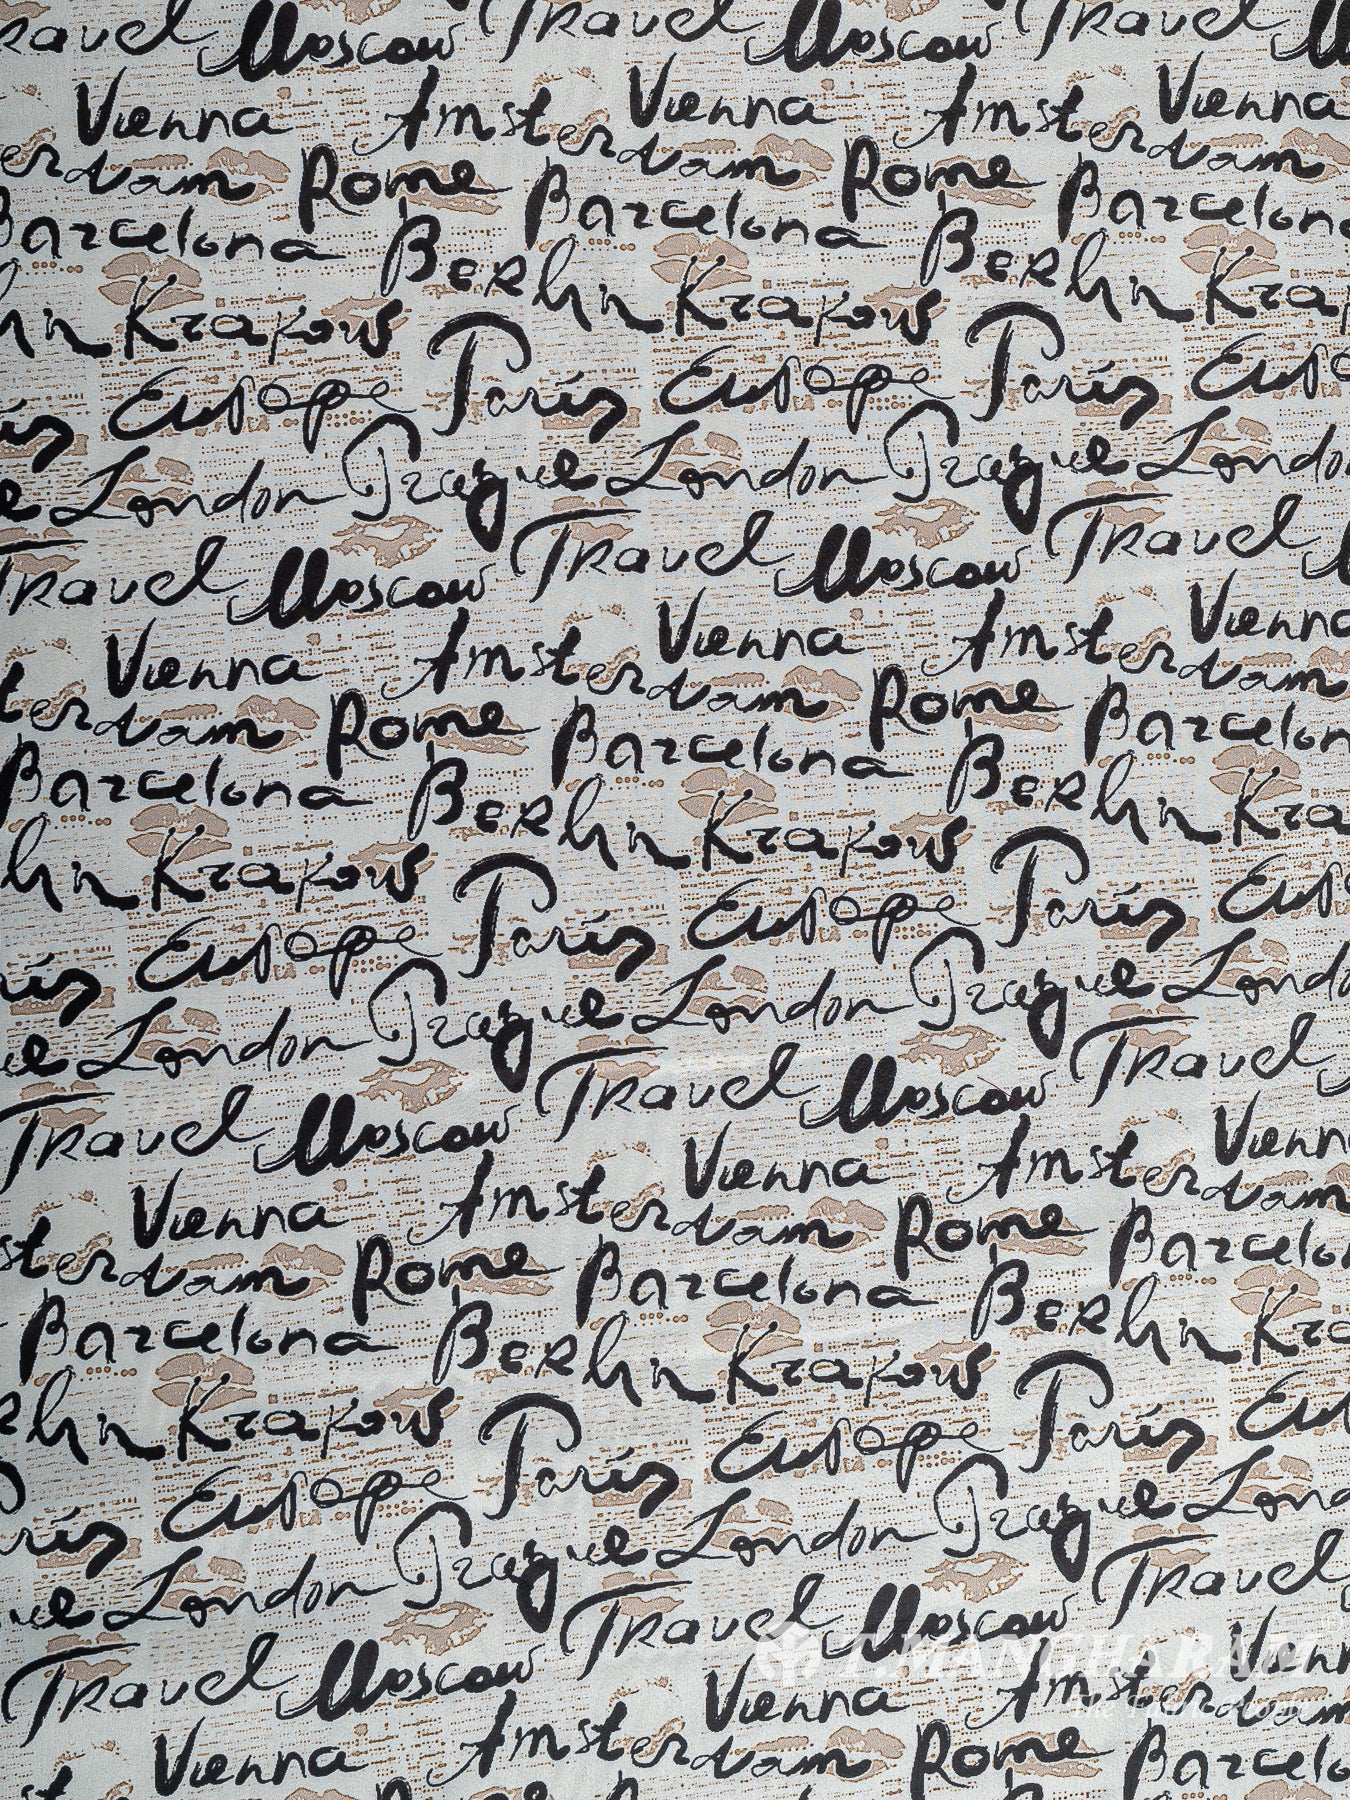 Travel Moscow Travel Moscow Travel
Vienna Amsterdam Vienna Amsterdam Vienna
Rome Barcelona Rome Barcelona
Barcelona Berlin Berlin
Krakow Krakow
Europe Paris Europe Paris
London Prague London Prague London
Travel Moscow Travel Moscow Travel
Vienna Amsterdam Vienna Amsterdam Vienna
Rome Barcelona Rome Barcelona
Barcelona Berlin Berlin
Krakow Krakow
Europe Paris Europe Paris
London Prague London Prague London
Travel Moscow Travel Moscow Travel
Vienna Amsterdam Vienna Amsterdam Vienna
Rome Barcelona Rome Barcelona
Barcelona Berlin Berlin
Krakow Krakow
Europe Paris Europe Paris
London Prague London Prague London
Travel Moscow Travel Moscow Travel
Vienna Amsterdam Vienna Amsterdam Vienna
Rome Barcelona
T.MANGHARAM
The Fabric People